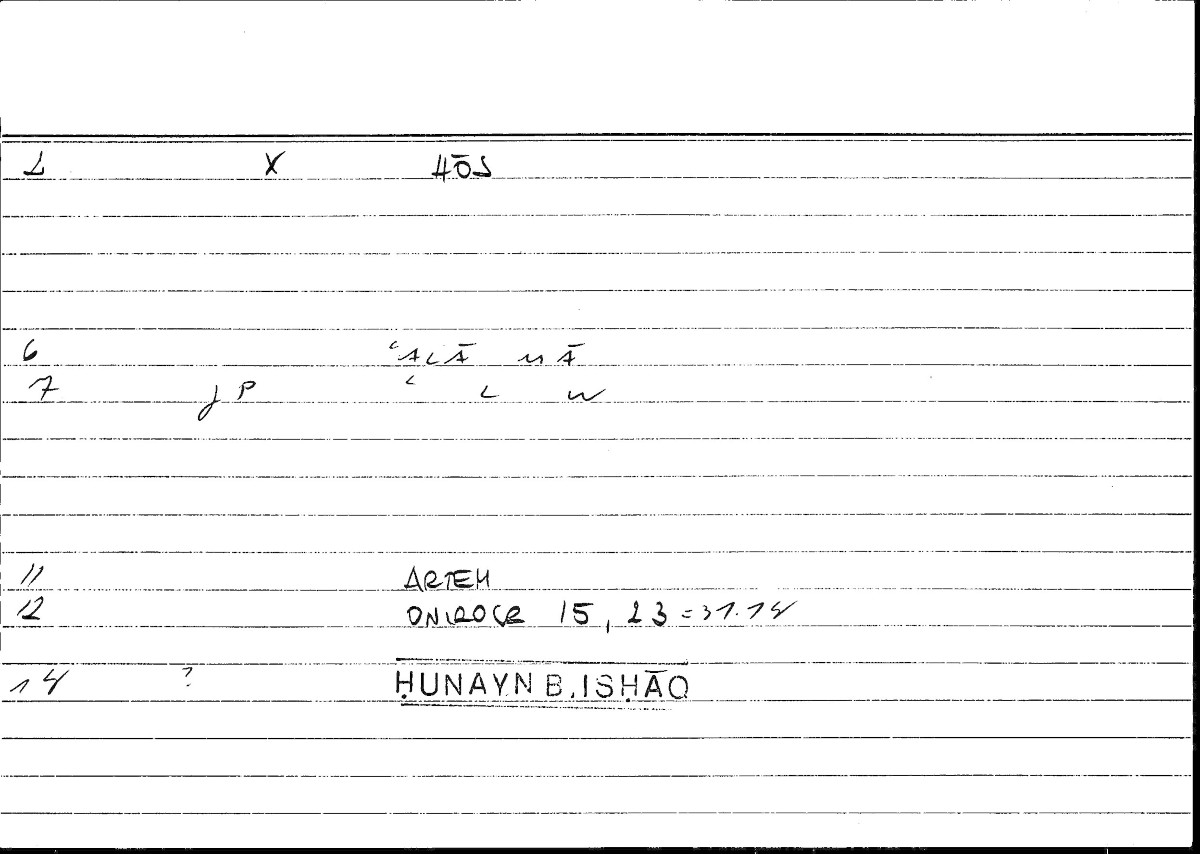 1 X HŌS
6 ʿALĀ MĀ
7 J P ʿ L W
11 ARTEM
12 ONIROCR 15, 23 = 31.14
14 ? ḤUNAYN B. ISḤĀQ